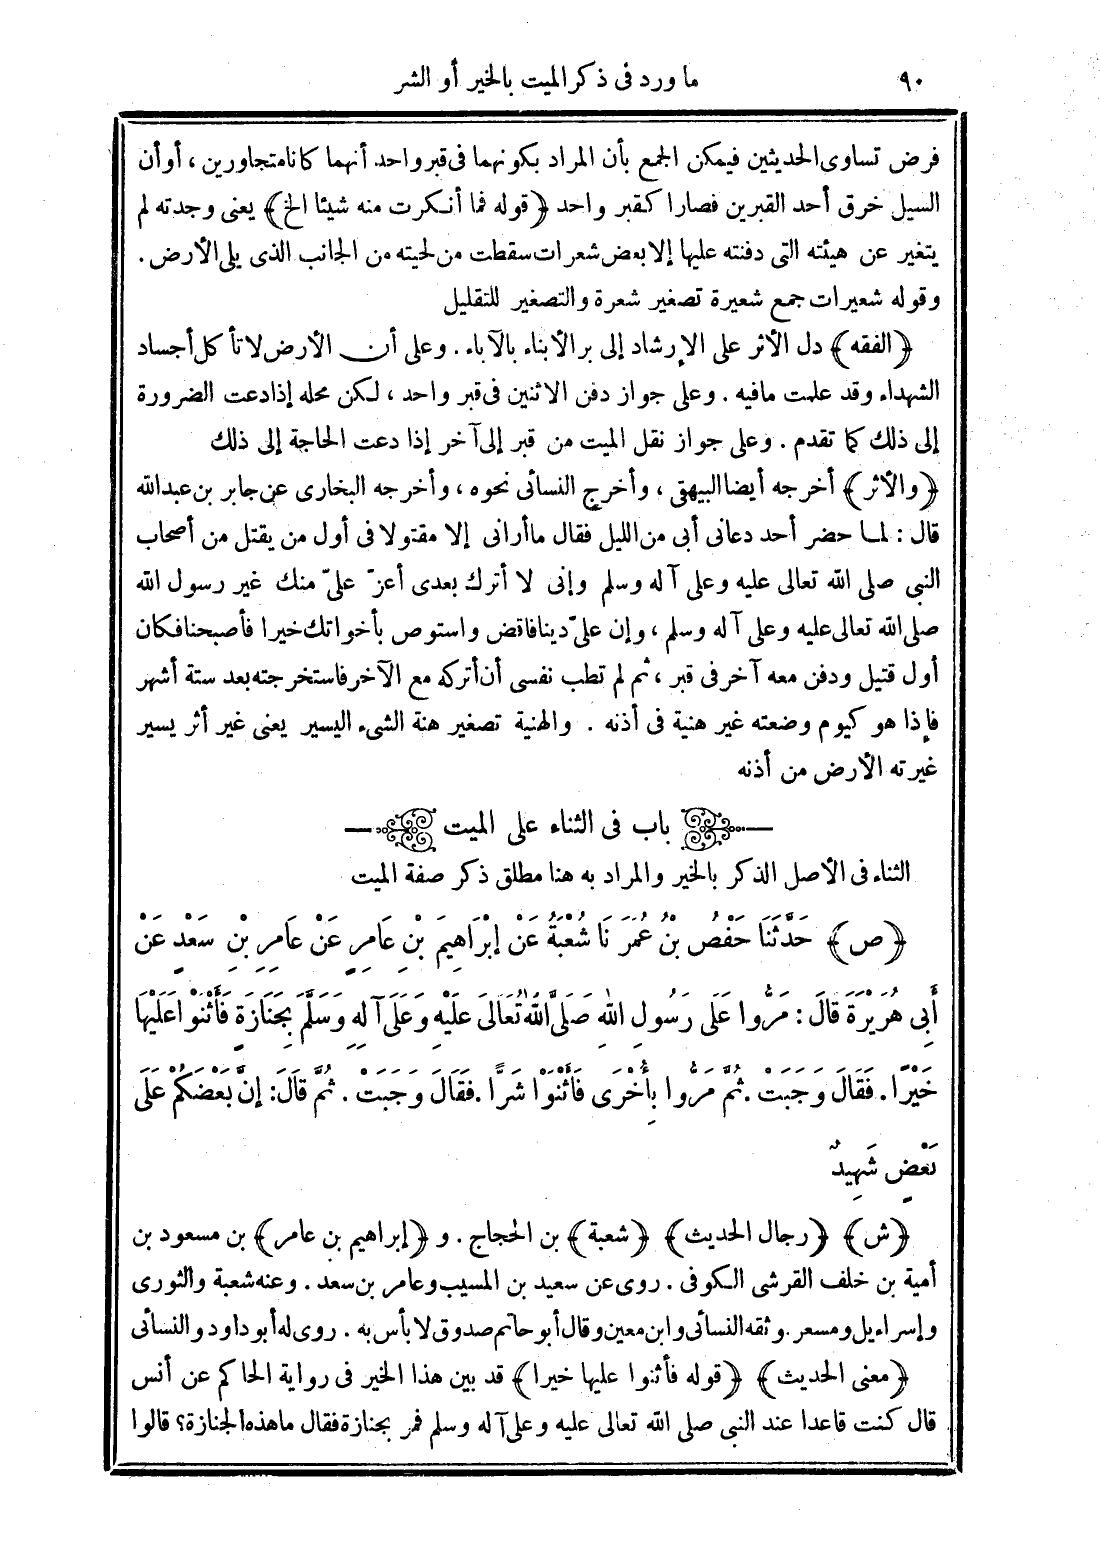 ٩٠ ما ورد فى ذكر الميت بالخير أو الشر
فرض تساوى الحديثين فيمكن الجمع بأن المراد بكونهما فى قبر واحد أنهما كانا متجاورين ، أو أن
السيل خرق أحد القبرين فصارا كقبر واحد ﴿قوله فما أنكرت منه شيئا الخ﴾ يعنى وجدته لم
يتغير عن هيئته التى دفنته عليها إلا بعض شعرات سقطت من لحيته من الجانب الذى يلى الأرض .
وقوله شعيرات جمع شعيرة تصغير شعرة والتصغير للتقليل
﴿الفقه﴾ دل الأثر على الإرشاد إلى بر الأبناء بالآباء . وعلى أن الأرض لا تأكل أجساد
الشهداء وقد علمت مافيه . وعلى جواز دفن الاثنين فى قبر واحد ، لكن محله إذا دعت الضرورة
إلى ذلك كما تقدم . وعلى جواز نقل الميت من قبر إلى آخر إذا دعت الحاجة إلى ذلك
﴿والأثر﴾ أخرجه أيضا البيهقى ، وأخرج النسائى نحوه ، وأخرجه البخارى عن جابر بن عبد الله
قال : لما حضر أحد دعانى أبى من الليل فقال ما أرانى إلا مقتولا فى أول من يقتل من أصحاب
النبى صلى الله تعالى عليه وعلى آله وسلم وإنى لا أترك بعدى أعزّ علىّ منك غير رسول الله
صلى الله تعالى عليه وعلى آله وسلم ، وإن علىّ دينا فاقض واستوص بأخواتك خيرا فأصبحنا فكان
أول قتيل ودفن معه آخر فى قبر ، ثم لم تطب نفسى أن أتركه مع الآخر فاستخرجته بعد ستة أشهر
فإذا هو كيوم وضعته غير هنية فى أذنه . والهنية تصغير هنة الشىء اليسير يعنى غير أثر يسير
غيرته الأرض من أذنه
باب فى الثناء على الميت
الثناء فى الأصل الذكر بالخير والمراد به هنا مطلق ذكر صفة الميت
﴿ص﴾ حَدَّثَنَا حَفْصُ بْنُ عُمَرَ نَا شُعْبَةُ عَنْ إِبْرَاهِيمَ بْنِ عَامِرٍ عَنْ عَامِرِ بْنِ سَعْدٍ عَنْ
أَبِى هُرَيْرَةَ قَالَ : مَرُّوا عَلَى رَسُولِ اللهِ صَلَّى اللهُ تَعَالَى عَلَيْهِ وَعَلَى آلِهِ وَسَلَّمَ بِجَنَازَةٍ فَأَثْنَوْا عَلَيْهَا
خَيْرًا . فَقَالَ وَجَبَتْ . ثُمَّ مَرُّوا بِأُخْرَى فَأَثْنَوْا شَرًّا . فَقَالَ وَجَبَتْ . ثُمَّ قَالَ : إِنَّ بَعْضَكُمْ عَلَى
بَعْضٍ شَهِيدٌ
﴿ش﴾ ﴿رجال الحديث﴾ ﴿شعبة﴾ بن الحجاج . و ﴿إبراهيم بن عامر﴾ بن مسعود بن
أمية بن خلف القرشى الكوفى . روى عن سعيد بن المسيب وعامر بن سعد . وعنه شعبة والثورى
وإسراءيل ومسعر . وثقه النسائى وابن معين وقال أبو حاتم صدوق لا بأس به . روى له أبو داود والنسائى
﴿معنى الحديث﴾ ﴿قوله فأثنوا عليها خيرا﴾ قد بين هذا الخير فى رواية الحاكم عن أنس
قال كنت قاعدا عند النبى صلى الله تعالى عليه وعلى آله وسلم فمر بجنازة فقال ما هذه الجنازة؟ قالوا